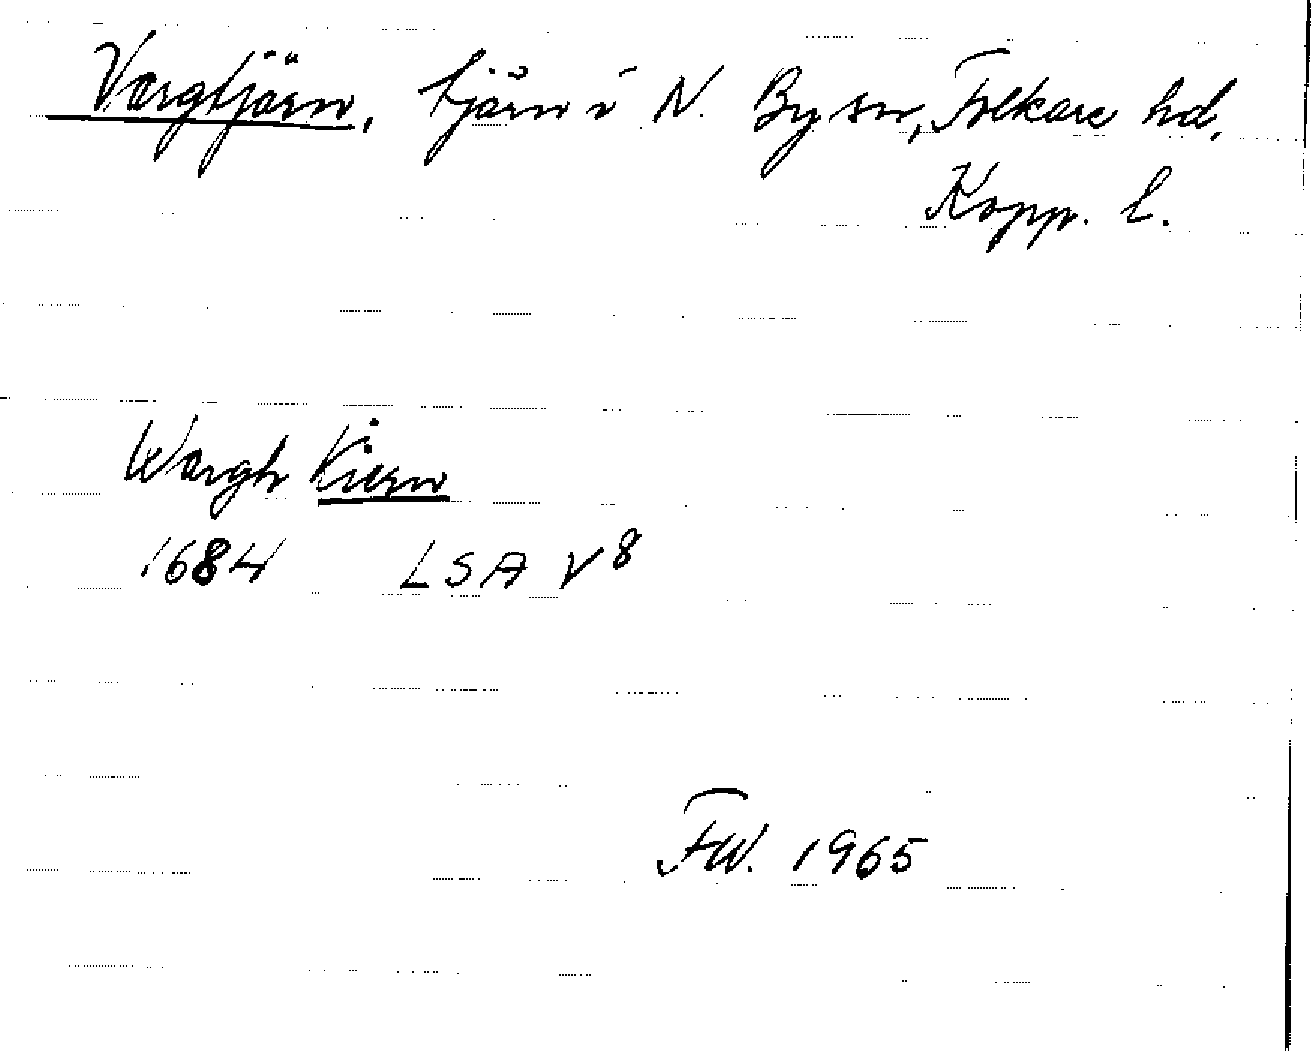 Vargtjärn, tjärn i N. By sn, Folkare hd,
Kopp. l.
Wargh Kiern
1684 LSA V8
FW. 1965